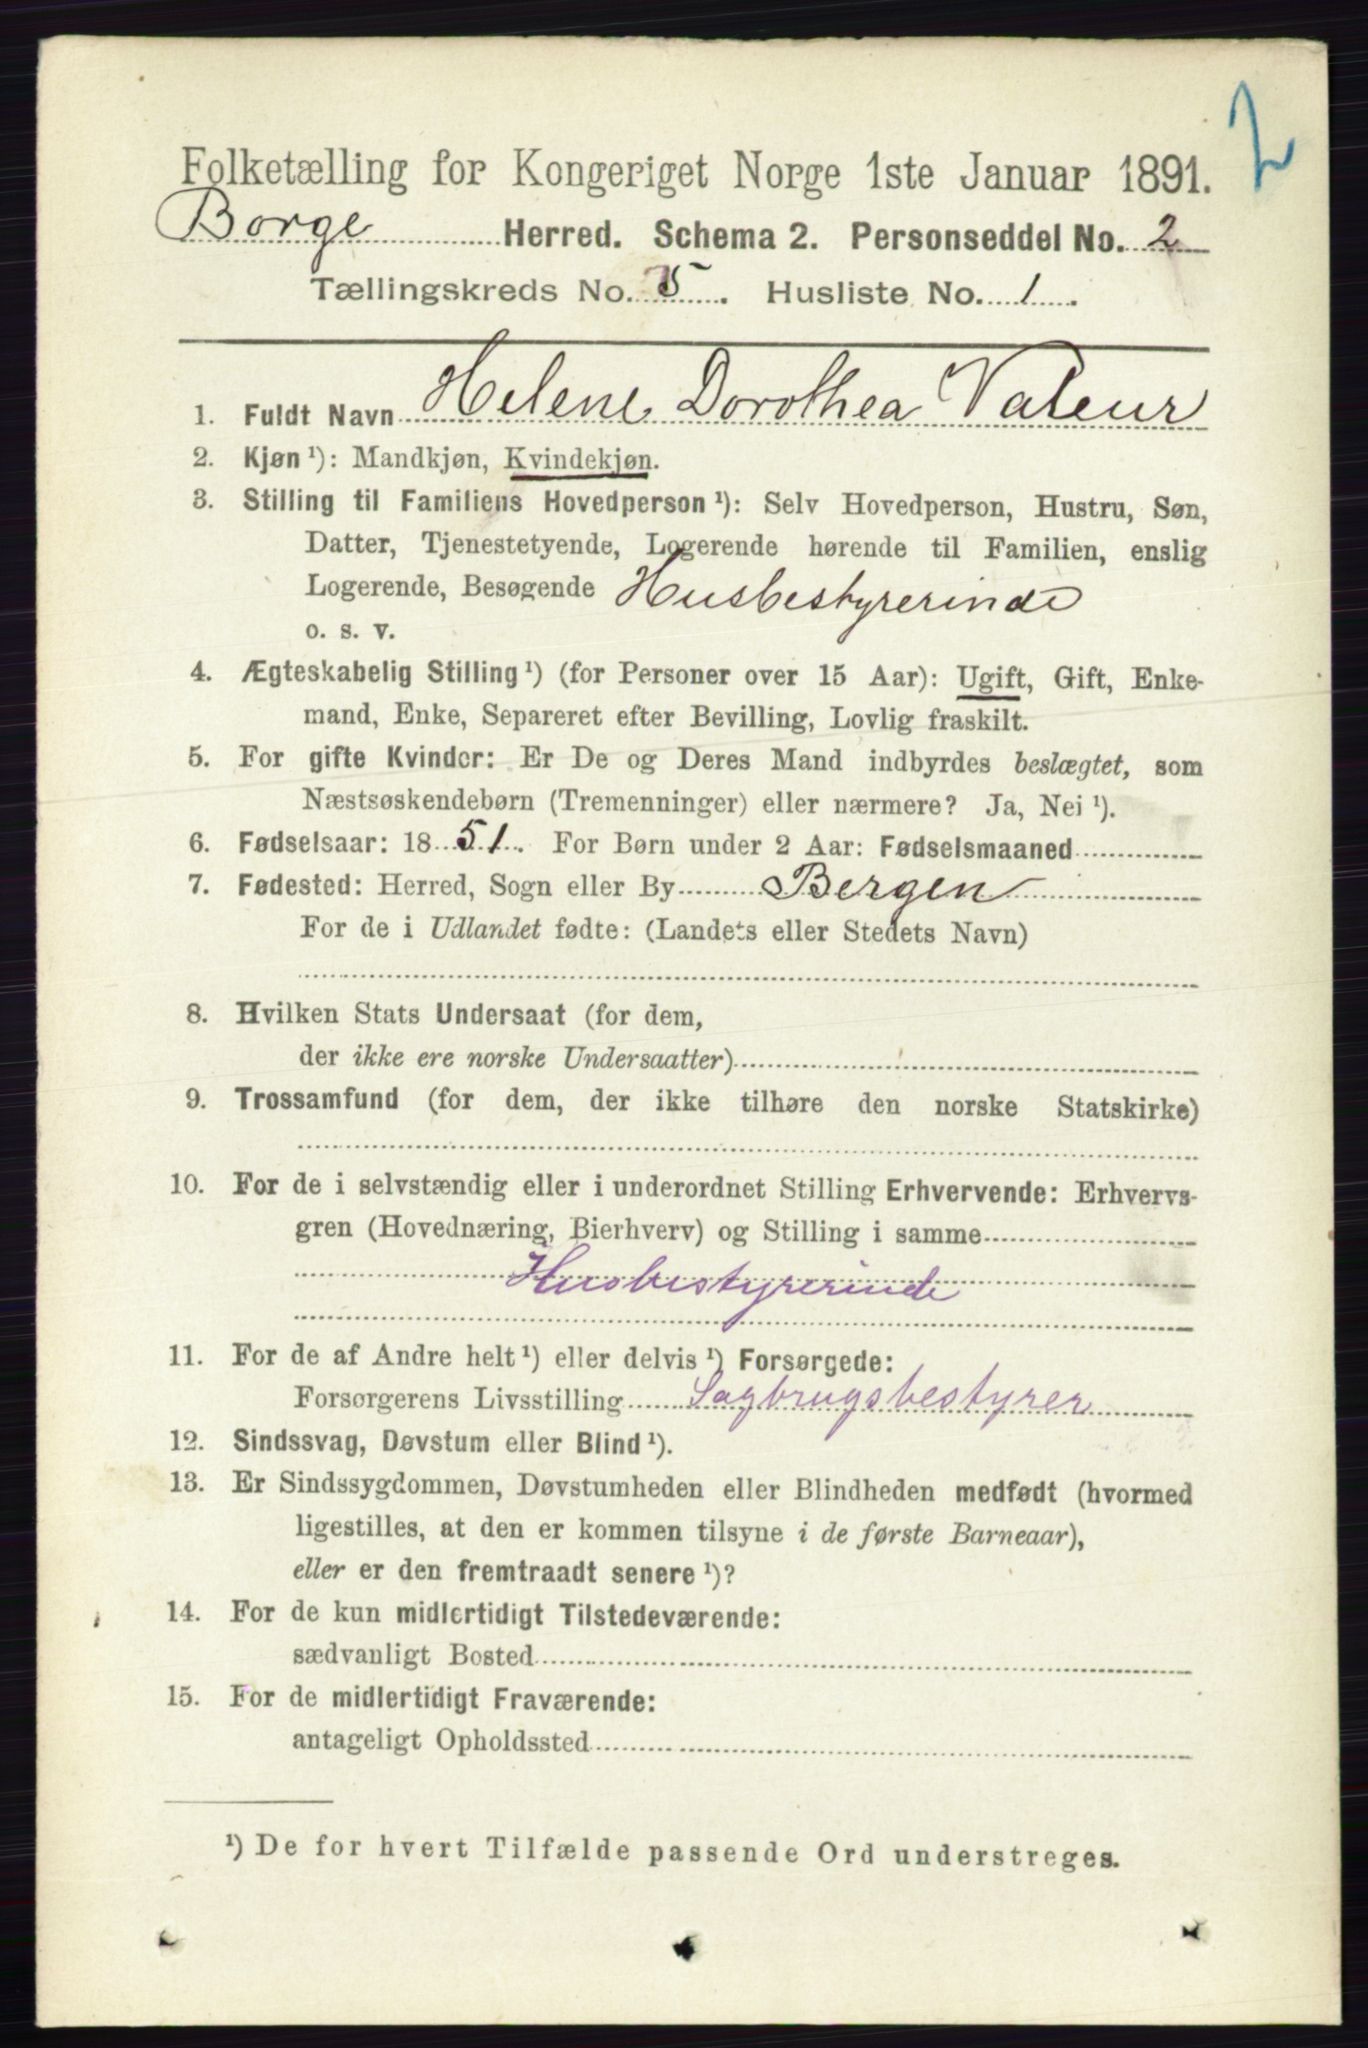 2
Folketælling for Kongeriget Norge 1ste Januar 1891.
Borge Herred. Schema 2. Personseddel No. 2
Tællingskreds No. 5. Husliste No. 1.
1. Fuldt Navn Helene Dorothea Valeur
2. Kjøn ¹): Mandkjøn, Kvindekjøn.
3. Stilling til Familiens Hovedperson ¹): Selv Hovedperson, Hustru, Søn,
Datter, Tjenestetyende, Logerende hørende til Familien, enslig
Logerende, Besøgende Husbestyrerinde
o. s. v.
4. Ægteskabelig Stilling ¹) (for Personer over 15 Aar): Ugift, Gift, Enke-
mand, Enke, Separeret efter Bevilling, Lovlig fraskilt.
5. For gifte Kvinder: Er De og Deres Mand indbyrdes beslægtet, som
Næstsøskendebørn (Tremenninger) eller nærmere? Ja, Nei ¹).
6. Fødselsaar: 1851. For Børn under 2 Aar: Fødselsmaaned
7. Fødested: Herred, Sogn eller By Bergen
For de i Udlandet fødte: (Landets eller Stedets Navn)
8. Hvilken Stats Undersaat (for dem,
der ikke ere norske Undersaatter)
9. Trossamfund (for dem, der ikke tilhøre den norske Statskirke)
10. For de i selvstændig eller i underordnet Stilling Erhvervende: Erhvervs-
gren (Hovednæring, Bierhverv) og Stilling i samme
Husbestyrerinde
11. For de af Andre helt ¹) eller delvis ¹) Forsørgede:
Forsørgerens Livsstilling Sagbrugsbestyrer
12. Sindssvag, Døvstum eller Blind ¹).
13. Er Sindssygdommen, Døvstumheden eller Blindheden medfødt (hvormed
ligestilles, at den er kommen tilsyne i de første Barneaar),
eller er den fremtraadt senere ¹)?
14. For de kun midlertidigt Tilstedeværende:
sædvanligt Bosted
15. For de midlertidigt Fraværende:
antageligt Opholdssted
¹) De for hvert Tilfælde passende Ord understreges.